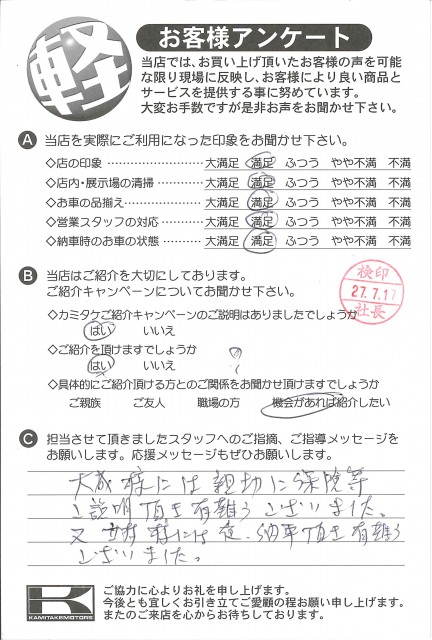 軽
お客様アンケート
当店では、お買い上げ頂いたお客様の声を可能
な限り現場に反映し、お客様により良い商品と
サービスを提供する事に努めています。
大変お手数ですが是非お声をお聞かせ下さい。
A 当店を実際にご利用になった印象をお聞かせ下さい。
◇店の印象 ………………… 大満足 満足 ふつう やや不満 不満
◇店内・展示場の清掃 ……… 大満足 満足 ふつう やや不満 不満
◇お車の品揃え …………… 大満足 満足 ふつう やや不満 不満
◇営業スタッフの対応 ……… 大満足 満足 ふつう やや不満 不満
◇納車時のお車の状態 ……… 大満足 満足 ふつう やや不満 不満
B 当店はご紹介を大切にしております。
ご紹介キャンペーンについてお聞かせ下さい。
検印
27.7.17
社長
◇カミタケご紹介キャンペーンのご説明はありましたでしょうか
はい いいえ
◇ご紹介を頂けますでしょうか
はい いいえ
◇具体的にご紹介頂ける方とのご関係をお聞かせ頂けますでしょうか
ご親族 ご友人 職場の方 機会があれば紹介したい
C 担当させて頂きましたスタッフへのご指摘、ご指導メッセージを
お願いします。応援メッセージもぜひお願いします。
様には親切に保険等
ご説明頂き有難うございました。
又 様には 納車頂き有難う
ございました。
K
KAMITAKEMOTORS
ご協力に心よりお礼を申し上げます。
今後とも宜しくお引き立てご愛顧の程お願い申し上げます。
またのご来店を心からお待ちしております。